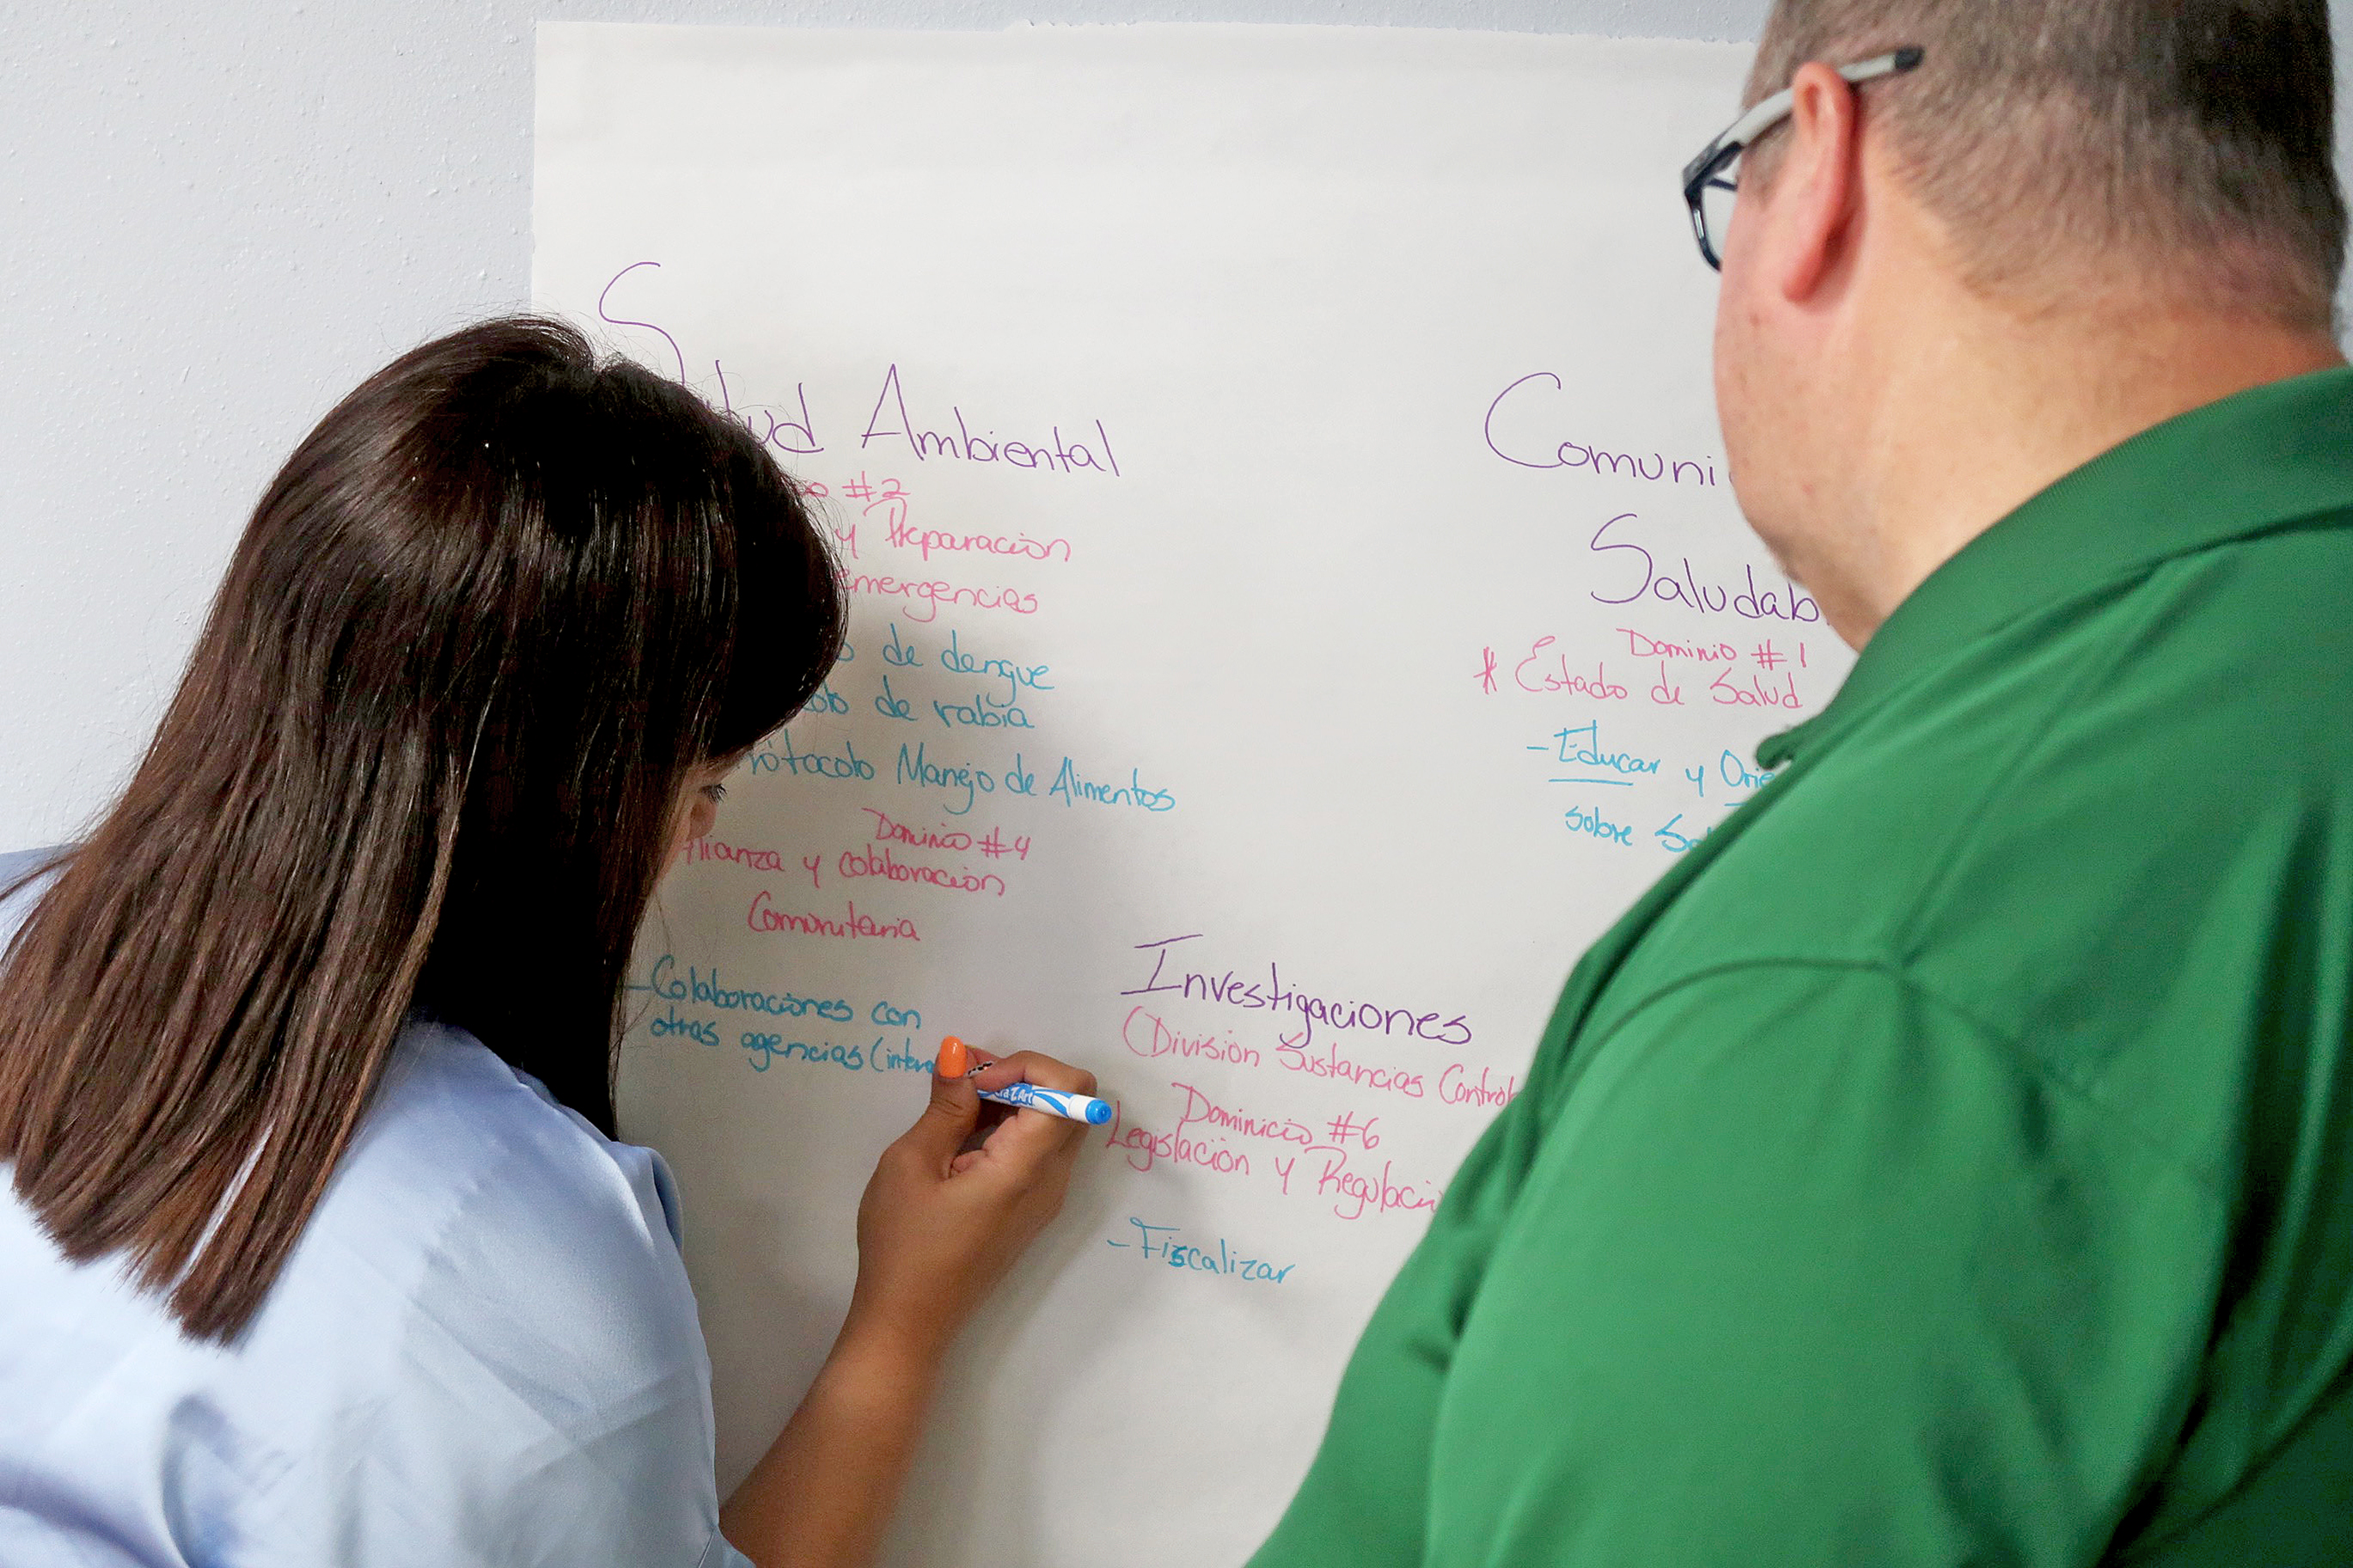 Salud Ambiental
#2
y Preparación
emergencias
de dengue
de rabia
Protocolo Manejo de Alimentos
Dominio #4
Alianza y colaboración
Comunitaria
-Colaboraciones con
otras agencias (inter
Comuni
Saludab
Dominio #1
* Estado de Salud
- Educar y Orie
sobre Sal
Investigaciones
(División Sustancias Control
Dominicio #6
Legislación y Regulació
- Fiscalizar